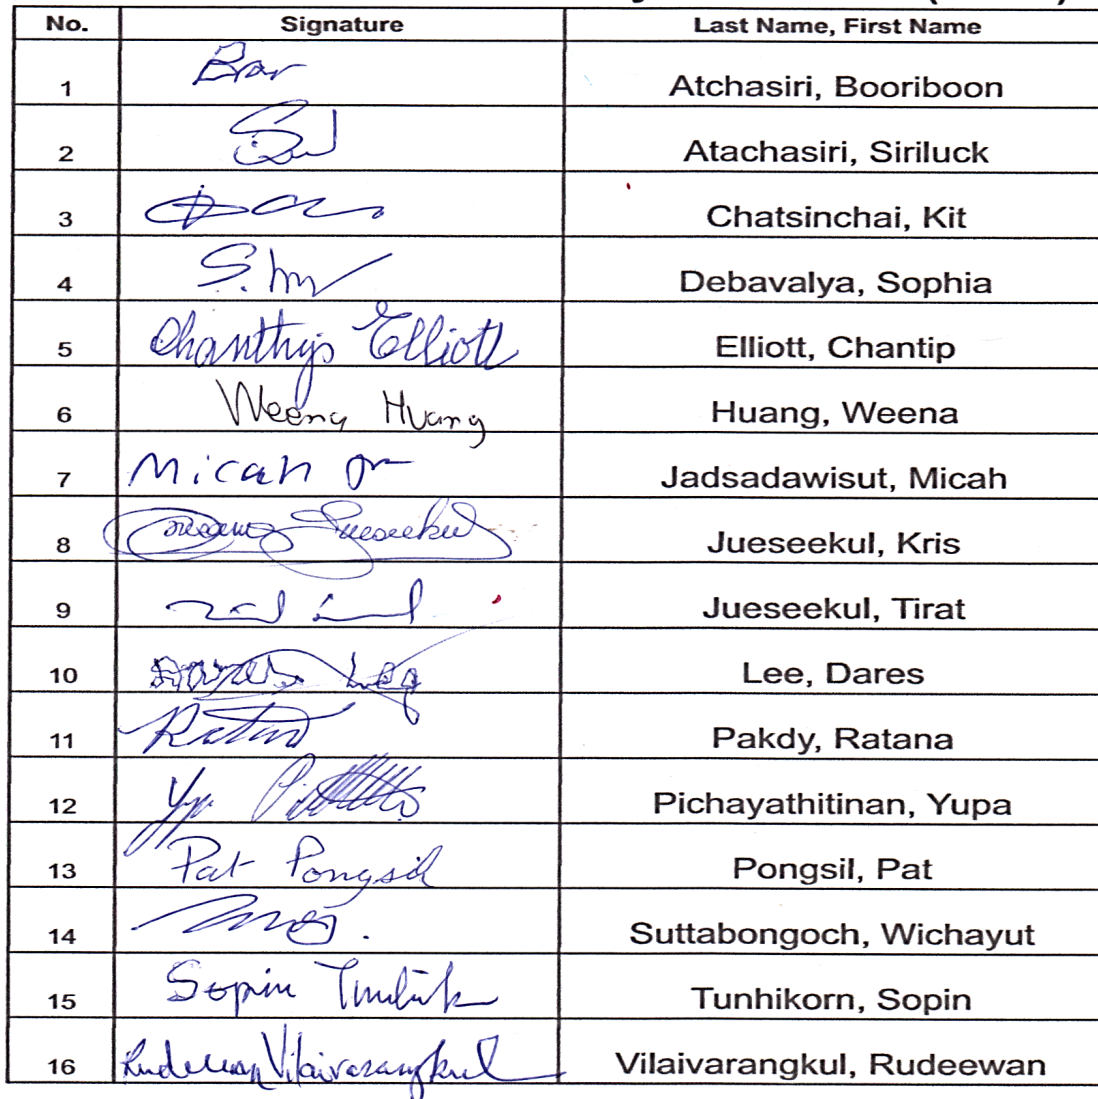 No. Signature Last Name, First Name
1 Atchasiri, Booriboon
2 Atachasiri, Siriluck
3 Chatsinchai, Kit
4 Debavalya, Sophia
5 Chanthip Elliott Elliott, Chantip
6 Weena Huang Huang, Weena
7 Micah Jadsadawisut, Micah
8 Jueseekul Jueseekul, Kris
9 Jueseekul, Tirat
10 Lee Lee, Dares
11 Ratana Pakdy, Ratana
12 Pichayathitinan, Yupa
13 Pat Pongsil Pongsil, Pat
14 Suttabongoch, Wichayut
15 Sopin Tunhikorn, Sopin
16 Rudeewan Vilaivarangkul Vilaivarangkul, Rudeewan